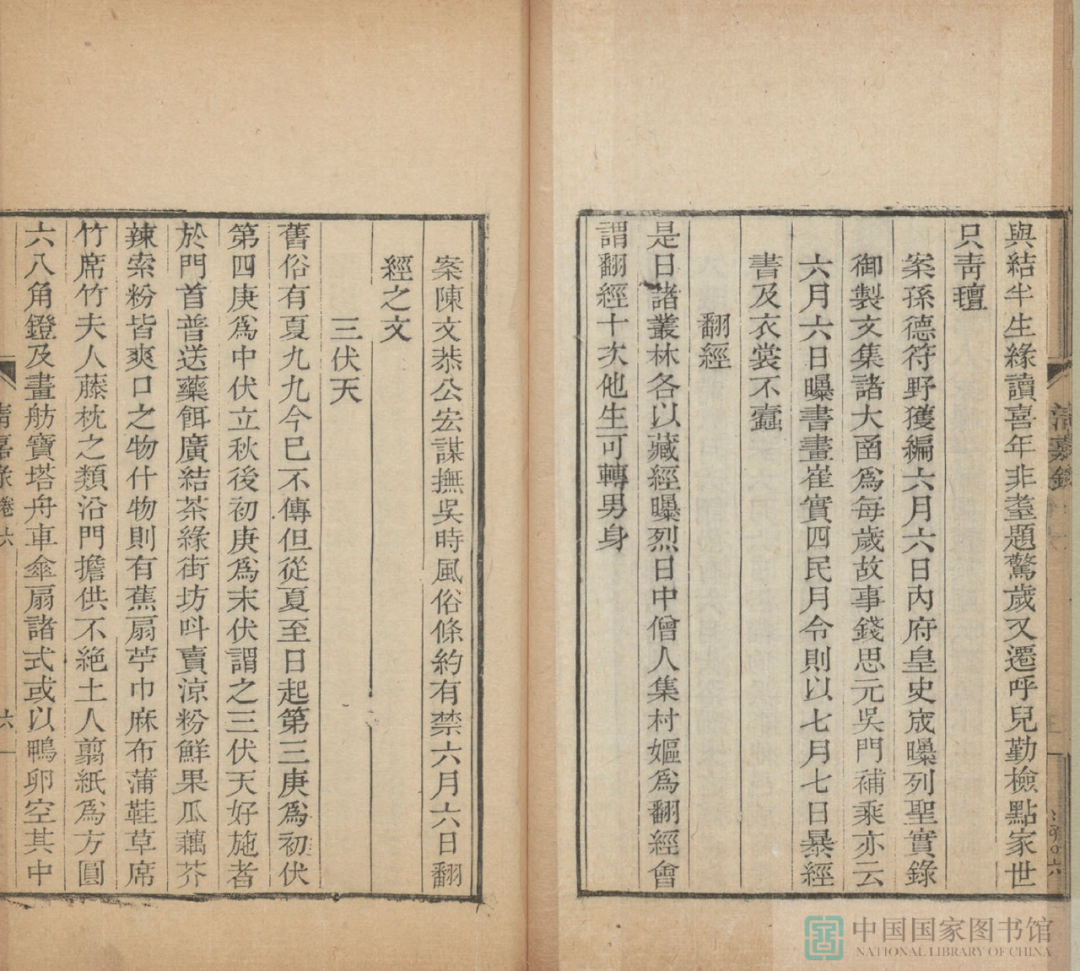 與結半生緣讀喜年非耋題驚歲又遷呼兒勤檢點家世
只靑氊
案孫德符野獲編六月六日內府皇史宬曝列聖實錄
御製文集諸大函爲每歲故事錢思元吳門補乘亦云
六月六日曝書畫崔實四民月令則以七月七日暴經
書及衣裳不蠹
翻經
是日諸叢林各以藏經曝烈日中僧人集村嫗爲翻經會
謂翻經十次他生可轉男身
案陳文恭公宏謀撫吳時風俗條約有禁六月六日翻
經之文
三伏天
舊俗有夏九九今已不傳但從夏至日起第三庚爲初伏
第四庚爲中伏立秋後初庚爲末伏謂之三伏天好施者
於門首普送藥餌廣結茶緣街坊叫賣涼粉鮮果瓜藕芥
辣索粉皆爽口之物什物則有蕉扇苧巾麻布蒲鞋草席
竹席竹夫人藤枕之類沿門擔供不絕土人翦紙爲方圓
六八角鐙及畫舫寶塔舟車傘扇諸式或以鴨卵空其中
清嘉錄
清嘉录卷六
六
中国国家图书馆
NATIONAL LIBRARY OF CHINA